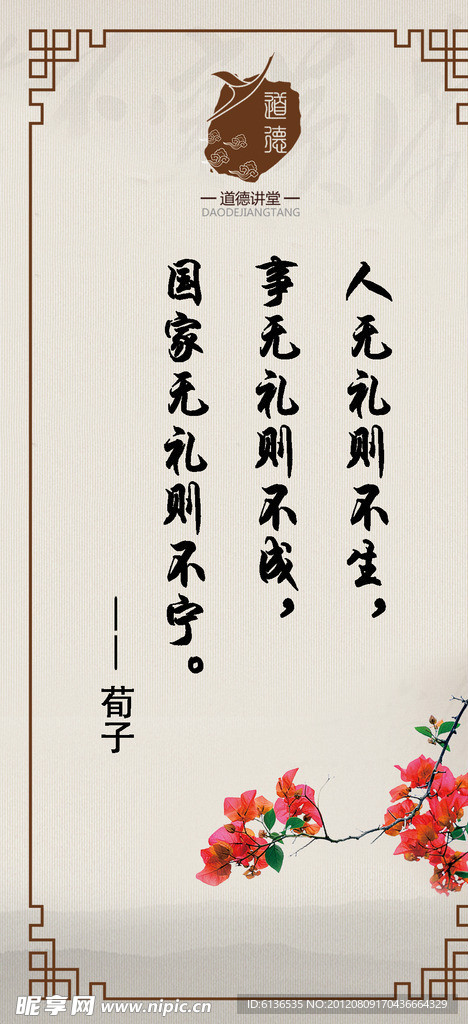 道德
道德讲堂
DAODEJIANGTANG
人无礼则不生，
事无礼则不成，
国家无礼则不宁。
——荀子
昵享网 www.nipic.cn
ID:6136535 NO:20120809170436664329